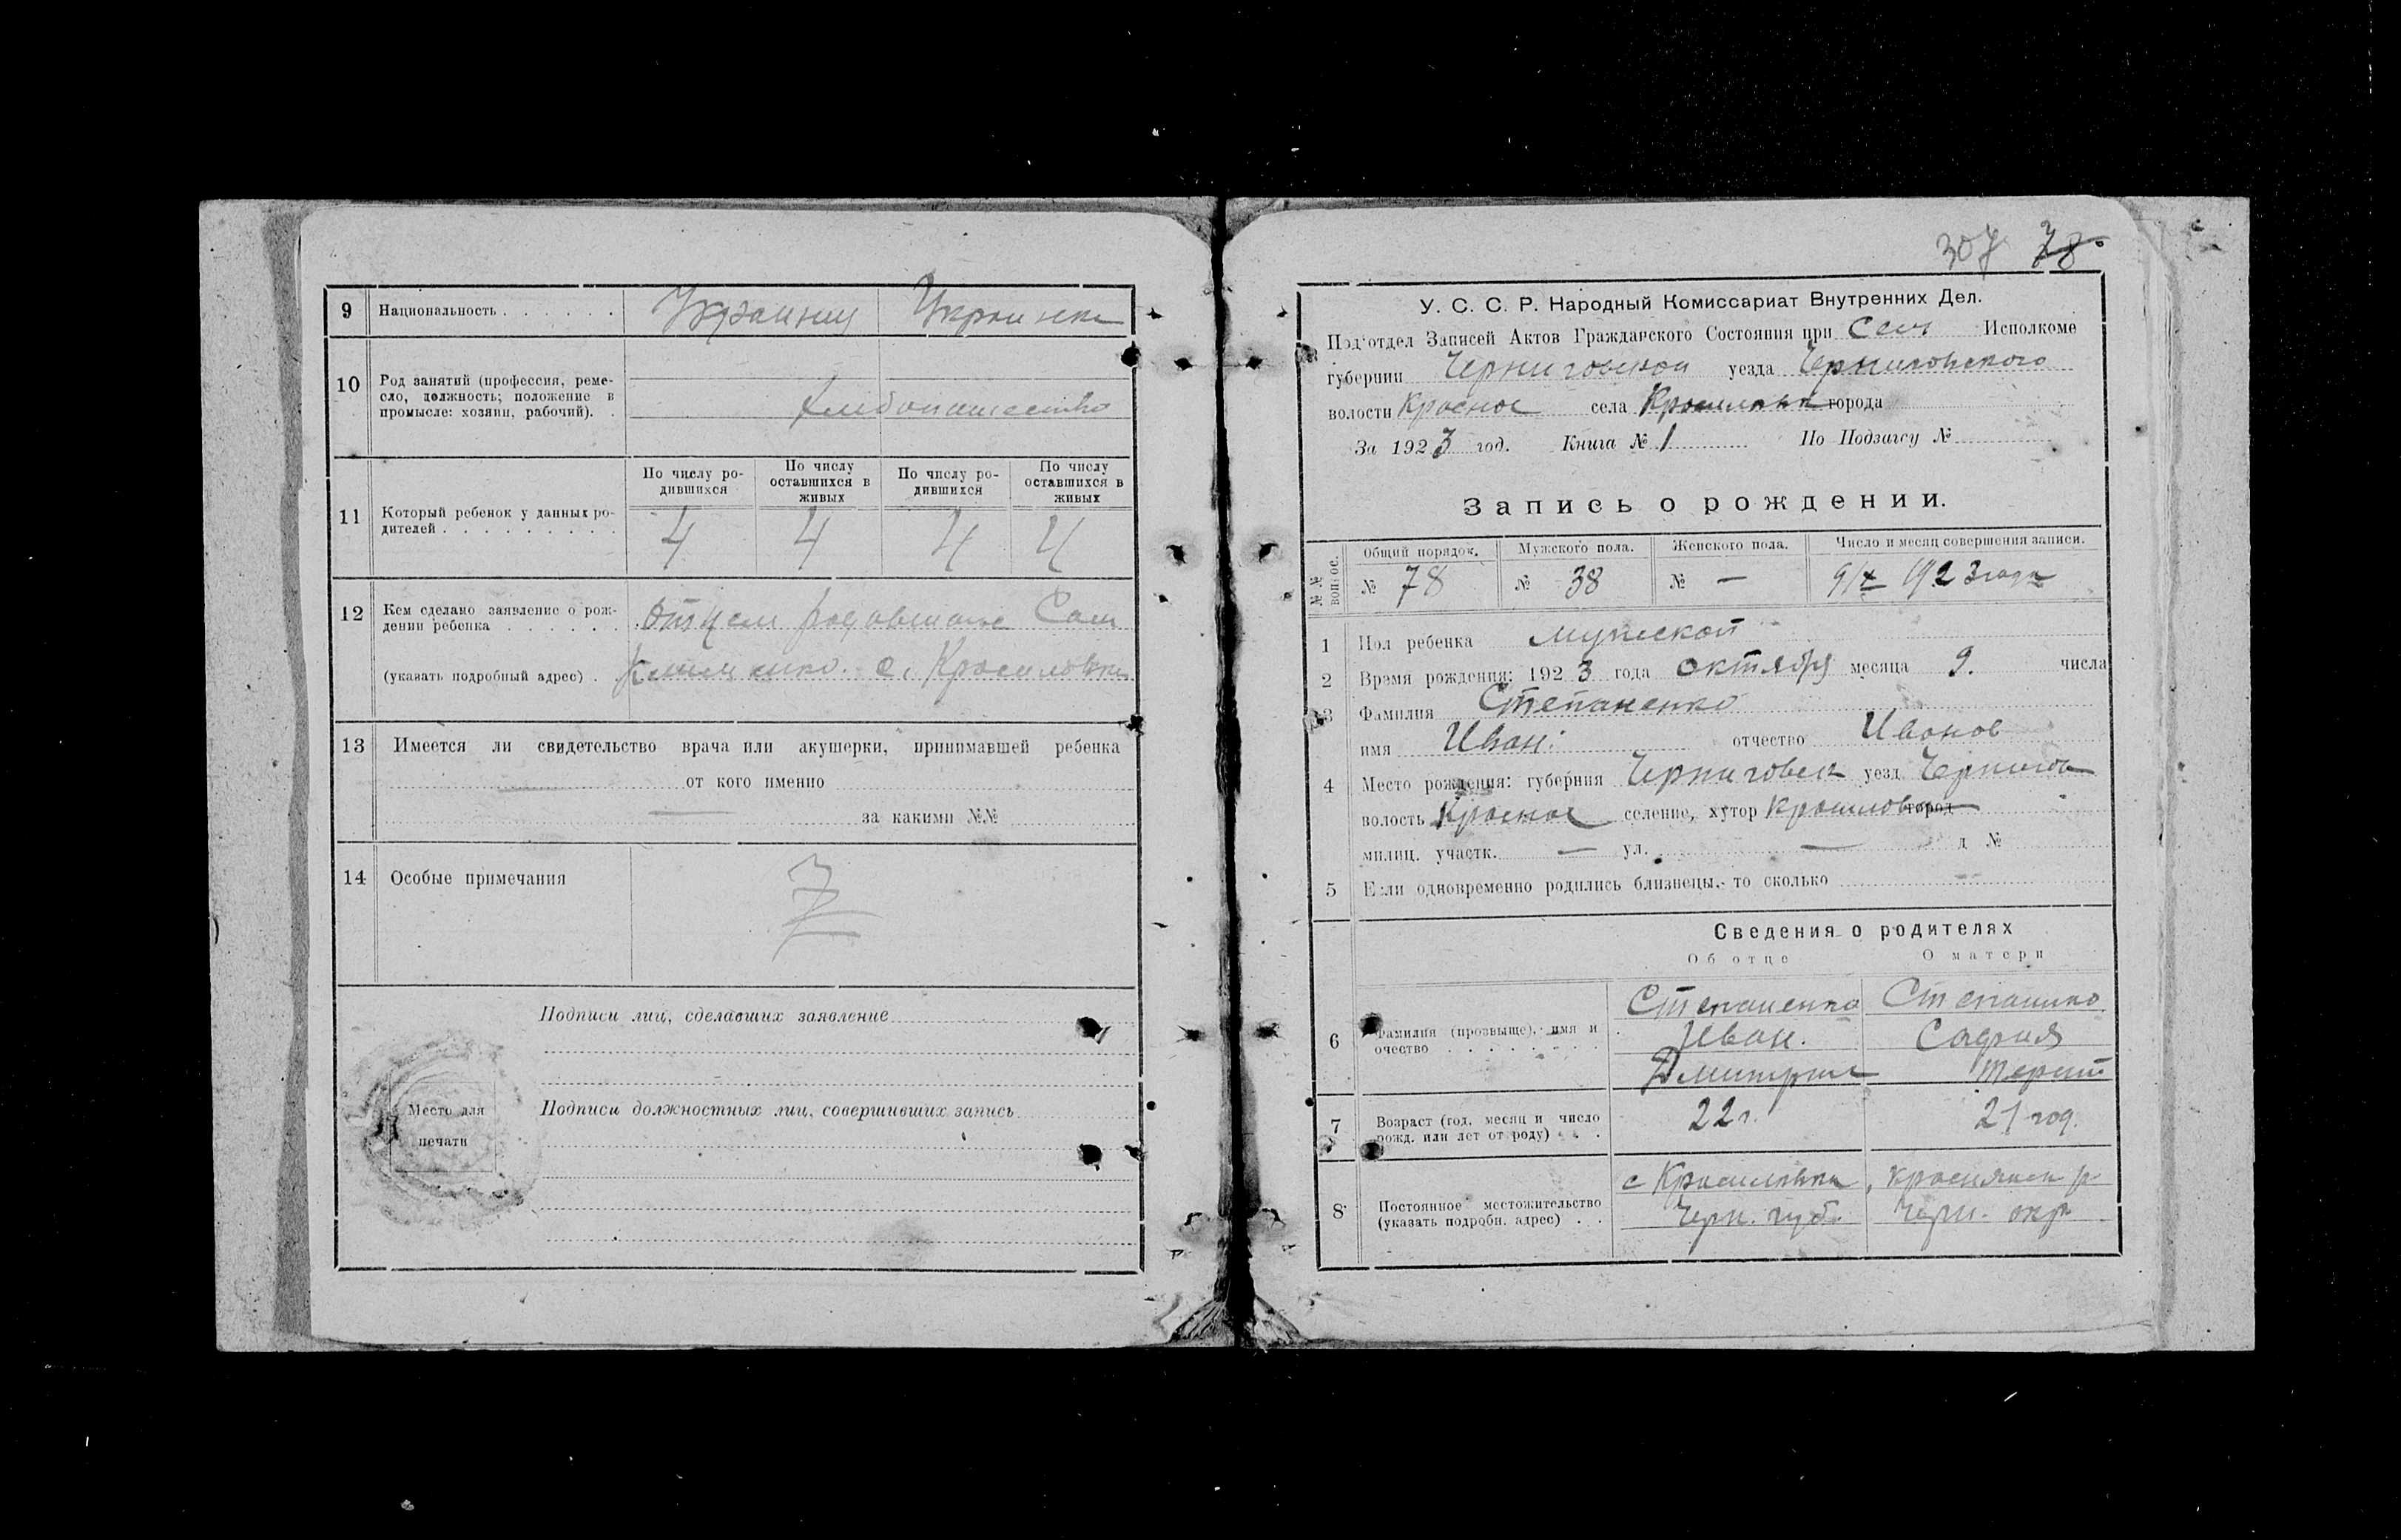 9 Национальность . . . . . . Украинец Украинка
10 Род занятий (профессия, реме-
сло, должность; положение в
промысле: хозяин, рабочий). . хлебопашество
11 Который ребенок у данных ро-
дителей . . . . . . . . .
По числу ро-
дившихся
По числу
оставшихся в
живых
По числу ро-
дившихся
По числу
оставшихся в
живых
4 4 4 4
12 Кем сделано заявление о рож-
дении ребенка . . . . . . Отцем
(указать подробный адрес) . с. Красиловка
13 Имеется ли свидетельство врача или акушерки, принимавшей ребенка
— от кого именно
— за какими №№
14 Особые примечания
Подписи лиц, сделавших заявление
Место для
печати
Подписи должностных лиц, совершивших запись
307 78
У. С. С. Р. Народный Комиссариат Внутренних Дел.
Под'отдел Записей Актов Гражданского Состояния при Сель Исполкоме
губернии Черниговской уезда Черниговского
волости Красное села Красиловки города
За 1923 год. Книга № 1 По Подзагсу №
Запись о рождении.
№№ вопрос.
Общий порядок. Мужского пола. Женского пола. Число и месяц совершения записи.
№ 78 № 38 № — 9/X 1923 года
1 Пол ребенка мужской
2 Время рождения: 1923 года октября месяца 9. числа
3 Фамилия Степаненко
имя Иван отчество Иванов
4 Место рождения: губерния Черниговск уезд Чернигов
волость Красное селение, хутор Красиловка город
милиц. участк. — ул. — д №
5 Если одновременно родились близнецы, то сколько
Сведения о родителях
Об отце О матери
6 Фамилия (прозвыще), имя и
очество . . . . . . . .
Степаненко Степаненко
Иван. София
Дмитрие Терент
7 Возраст (год, месяц и число
рожд. или лет от роду) . . .
22 г. 21 год.
8 Постоянное местожительство
(указать подробн. адрес) . .
с Красиловка, Краснянск р
Черн. губ. Черн. окр